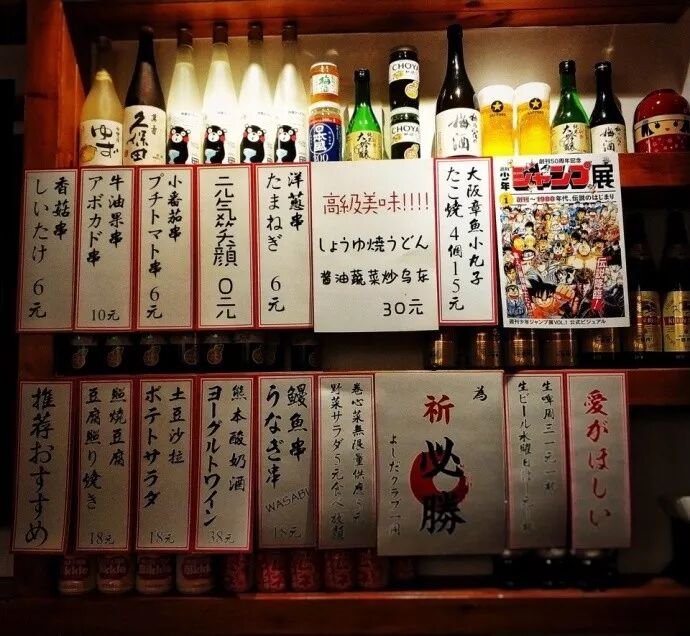 ゆず
久保田
CHOYA
CHOYA
梅酒
梅酒
香菇串
しいたけ 6元
牛油果串
アボカド串
10元
小番茄串
プチトマト串 6元
元気笑顔 0元
洋葱串
たまねぎ 6元
高級美味!!!!
しょうゆ焼うどん
酱油蔬菜炒乌冬
30元
大阪章魚小丸子
たこ焼 4個15元
創刊50周年記念
週刊少年
ジャンプ展
創刊〜1980年代、伝説のはじまり
週刊少年ジャンプ展VOL.1 公式ビジュアル
推荐おすすめ
照焼豆腐
豆腐照り焼き
18元
土豆沙拉
ポテトサラダ
18元
熊本酸奶酒
ヨーグルトワイン
38元
鰻魚串
うなぎ串
WASABI
18元
卷心菜無限量供應5元
野菜サラダ5元食べ放題
為
祈必勝
よしだクラブ一同
生啤周三1元一杯
生ビール水曜日
愛がほしい
Bikkle
Bikkle
Bikkle